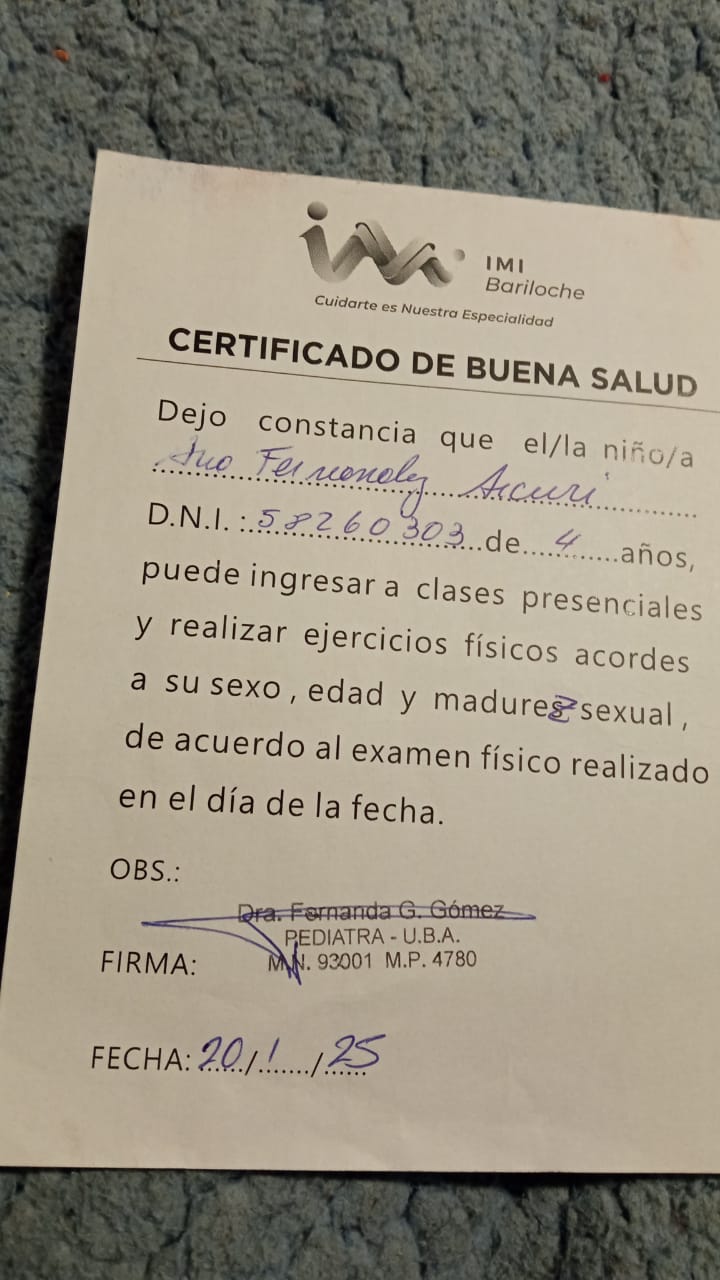 IMI
Bariloche
Cuidarte es Nuestra Especialidad
CERTIFICADO DE BUENA SALUD
Dejo constancia que el/la niño/a
Fernandez Arcuri
D.N.I.: 58260303 de 4 años,
puede ingresar a clases presenciales
y realizar ejercicios físicos acordes
a su sexo, edad y madurez sexual,
de acuerdo al examen físico realizado
en el día de la fecha.
OBS.:
Dra. Fernanda G. Gómez
PEDIATRA - U.B.A.
FIRMA: M.N. 93001 M.P. 4780
FECHA: 20/1/25